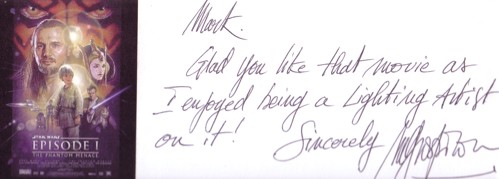 STAR WARS
EPISODE I
THE PHANTOM MENACE
Mark.
Glad you like that movie as
I enjoyed being a Lighting Artist
on it!
Sincerely